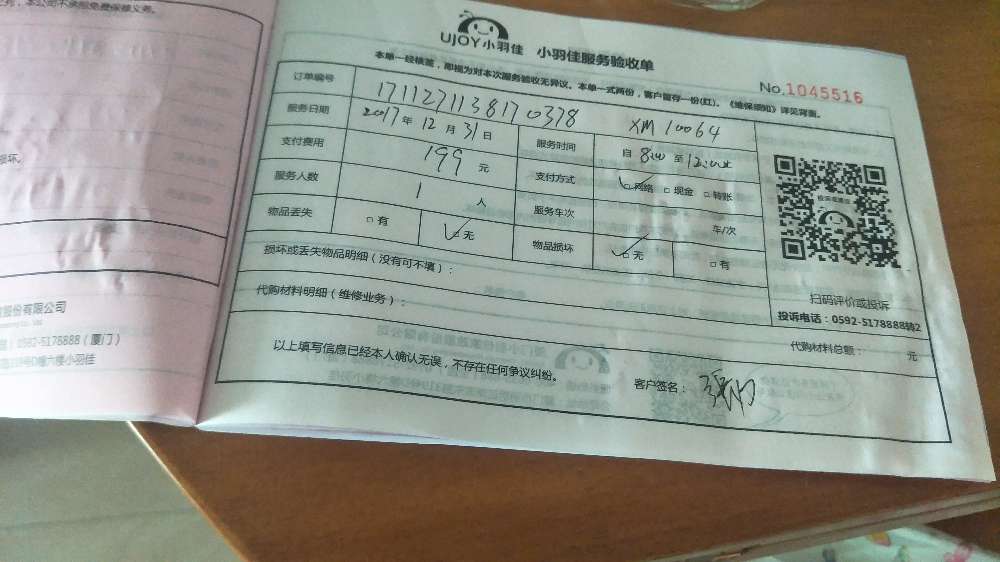 书，本公司不承担免费保修义务。
损坏。
股份有限公司
0592-5178888（厦门）
UJOY小羽佳 小羽佳服务验收单
No.1045516
本单一经核签，即视为对本次服务验收无异议。本单一式两份，客户留存一份(红)。《维保须知》详见背面。
订单编号 1711271138170378 XM10064
服务日期 2017年12月31日 服务时间 自8:00至12:00止
支付费用 199元 支付方式 网络 现金 转账
服务人数 1人 服务车次 车/次
物品丢失 有 无 物品损坏 无 有
损坏或丢失物品明细（没有可不填）：
扫码评价或投诉
投诉电话：0592-5178888转2
代购材料明细（维修业务）：
代购材料总额： 元
以上填写信息已经本人确认无误，不存在任何争议纠纷。
客户签名：